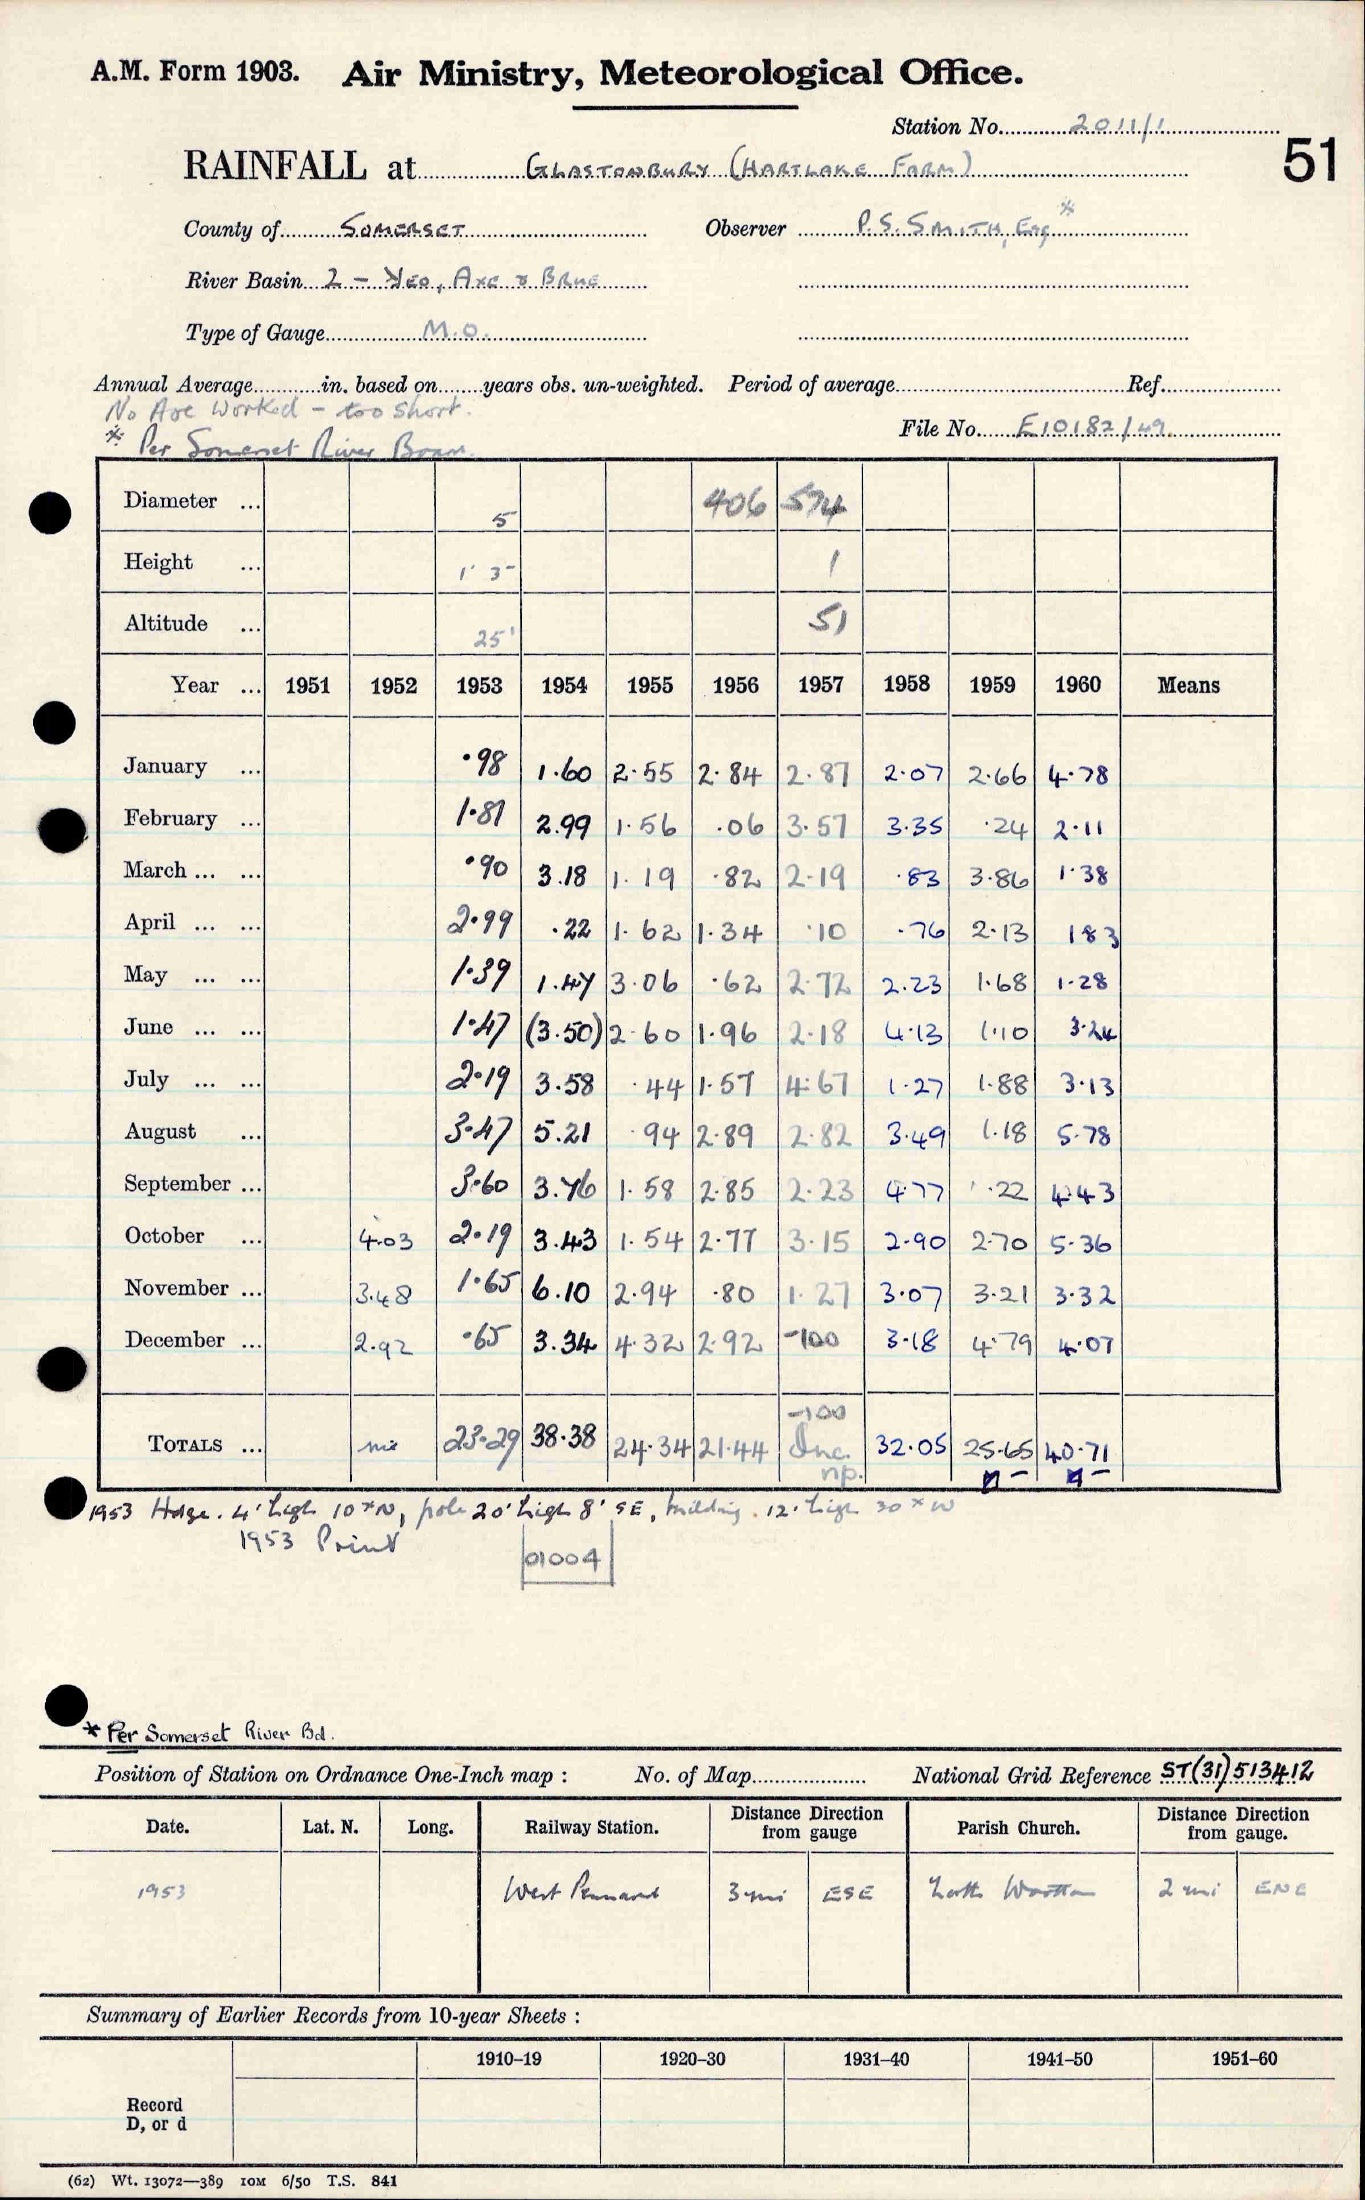 A.M. Form 1903. Air Ministry, Meteorological Office.
Station No. 2011/1
51
RAINFALL at GLASTONBURY (HARTLAKE FARM)
County of SOMERSET Observer P.S. SMITH, Esq *
River Basin 2 - YEO, AXE & BRUE
Type of Gauge M.O.
Annual Average in. based on years obs. un-weighted. Period of average Ref.
No Ave Worked - too short.
File No. E10182/49
* Per Somerset River Board.
Diameter ... 5 406 574
Height ... 1' 3" 1
Altitude ... 25' 51
Year ... 1951 1952 1953 1954 1955 1956 1957 1958 1959 1960 Means
January ... ·98 1.60 2.55 2.84 2.87 2.07 2.66 4.78
February ... 1.81 2.99 1.56 .06 3.57 3.35 .24 2.11
March ... ... ·90 3.18 1.19 .82 2.19 .83 3.86 1.38
April ... ... 2.99 .22 1.62 1.34 .10 .76 2.13 183
May ... ... 1.39 1.47 3.06 .62 2.72 2.23 1.68 1.28
June ... ... 1.47 (3.50) 2.60 1.96 2.18 4.13 1.10 3.24
July ... ... 2.19 3.58 .44 1.57 4.67 1.27 1.88 3.13
August ... 3.47 5.21 .94 2.89 2.82 3.49 1.18 5.78
September ... 3.60 3.76 1.58 2.85 2.23 4.77 .22 4.43
October ... 4.03 2.19 3.43 1.54 2.77 3.15 2.90 2.70 5.36
November ... 3.48 1.65 6.10 2.94 .80 1.27 3.07 3.21 3.32
December ... 2.92 .65 3.34 4.32 2.92 -100 3.18 4.79 4.07
-100
TOTALS ... 23.29 38.38 24.34 21.44 Inc. 32.05 25.65 40.71
np.
1953 Hedge 4' high 10 x N, pole 20' high 8' SE, building 12' high 30 x W
1953 Print
01004
* Per Somerset River Bd.
Position of Station on Ordnance One-Inch map : No. of Map National Grid Reference ST(31)513412
Date. Lat. N. Long. Railway Station. Distance Direction from gauge Parish Church. Distance Direction from gauge.
1953 West Pennard 3 mi ESE North Wootton 2 mi ENE
Summary of Earlier Records from 10-year Sheets :
1910–19 1920–30 1931–40 1941–50 1951–60
Record
D, or d
(62) Wt. 13072—389 10M 6/50 T.S. 841